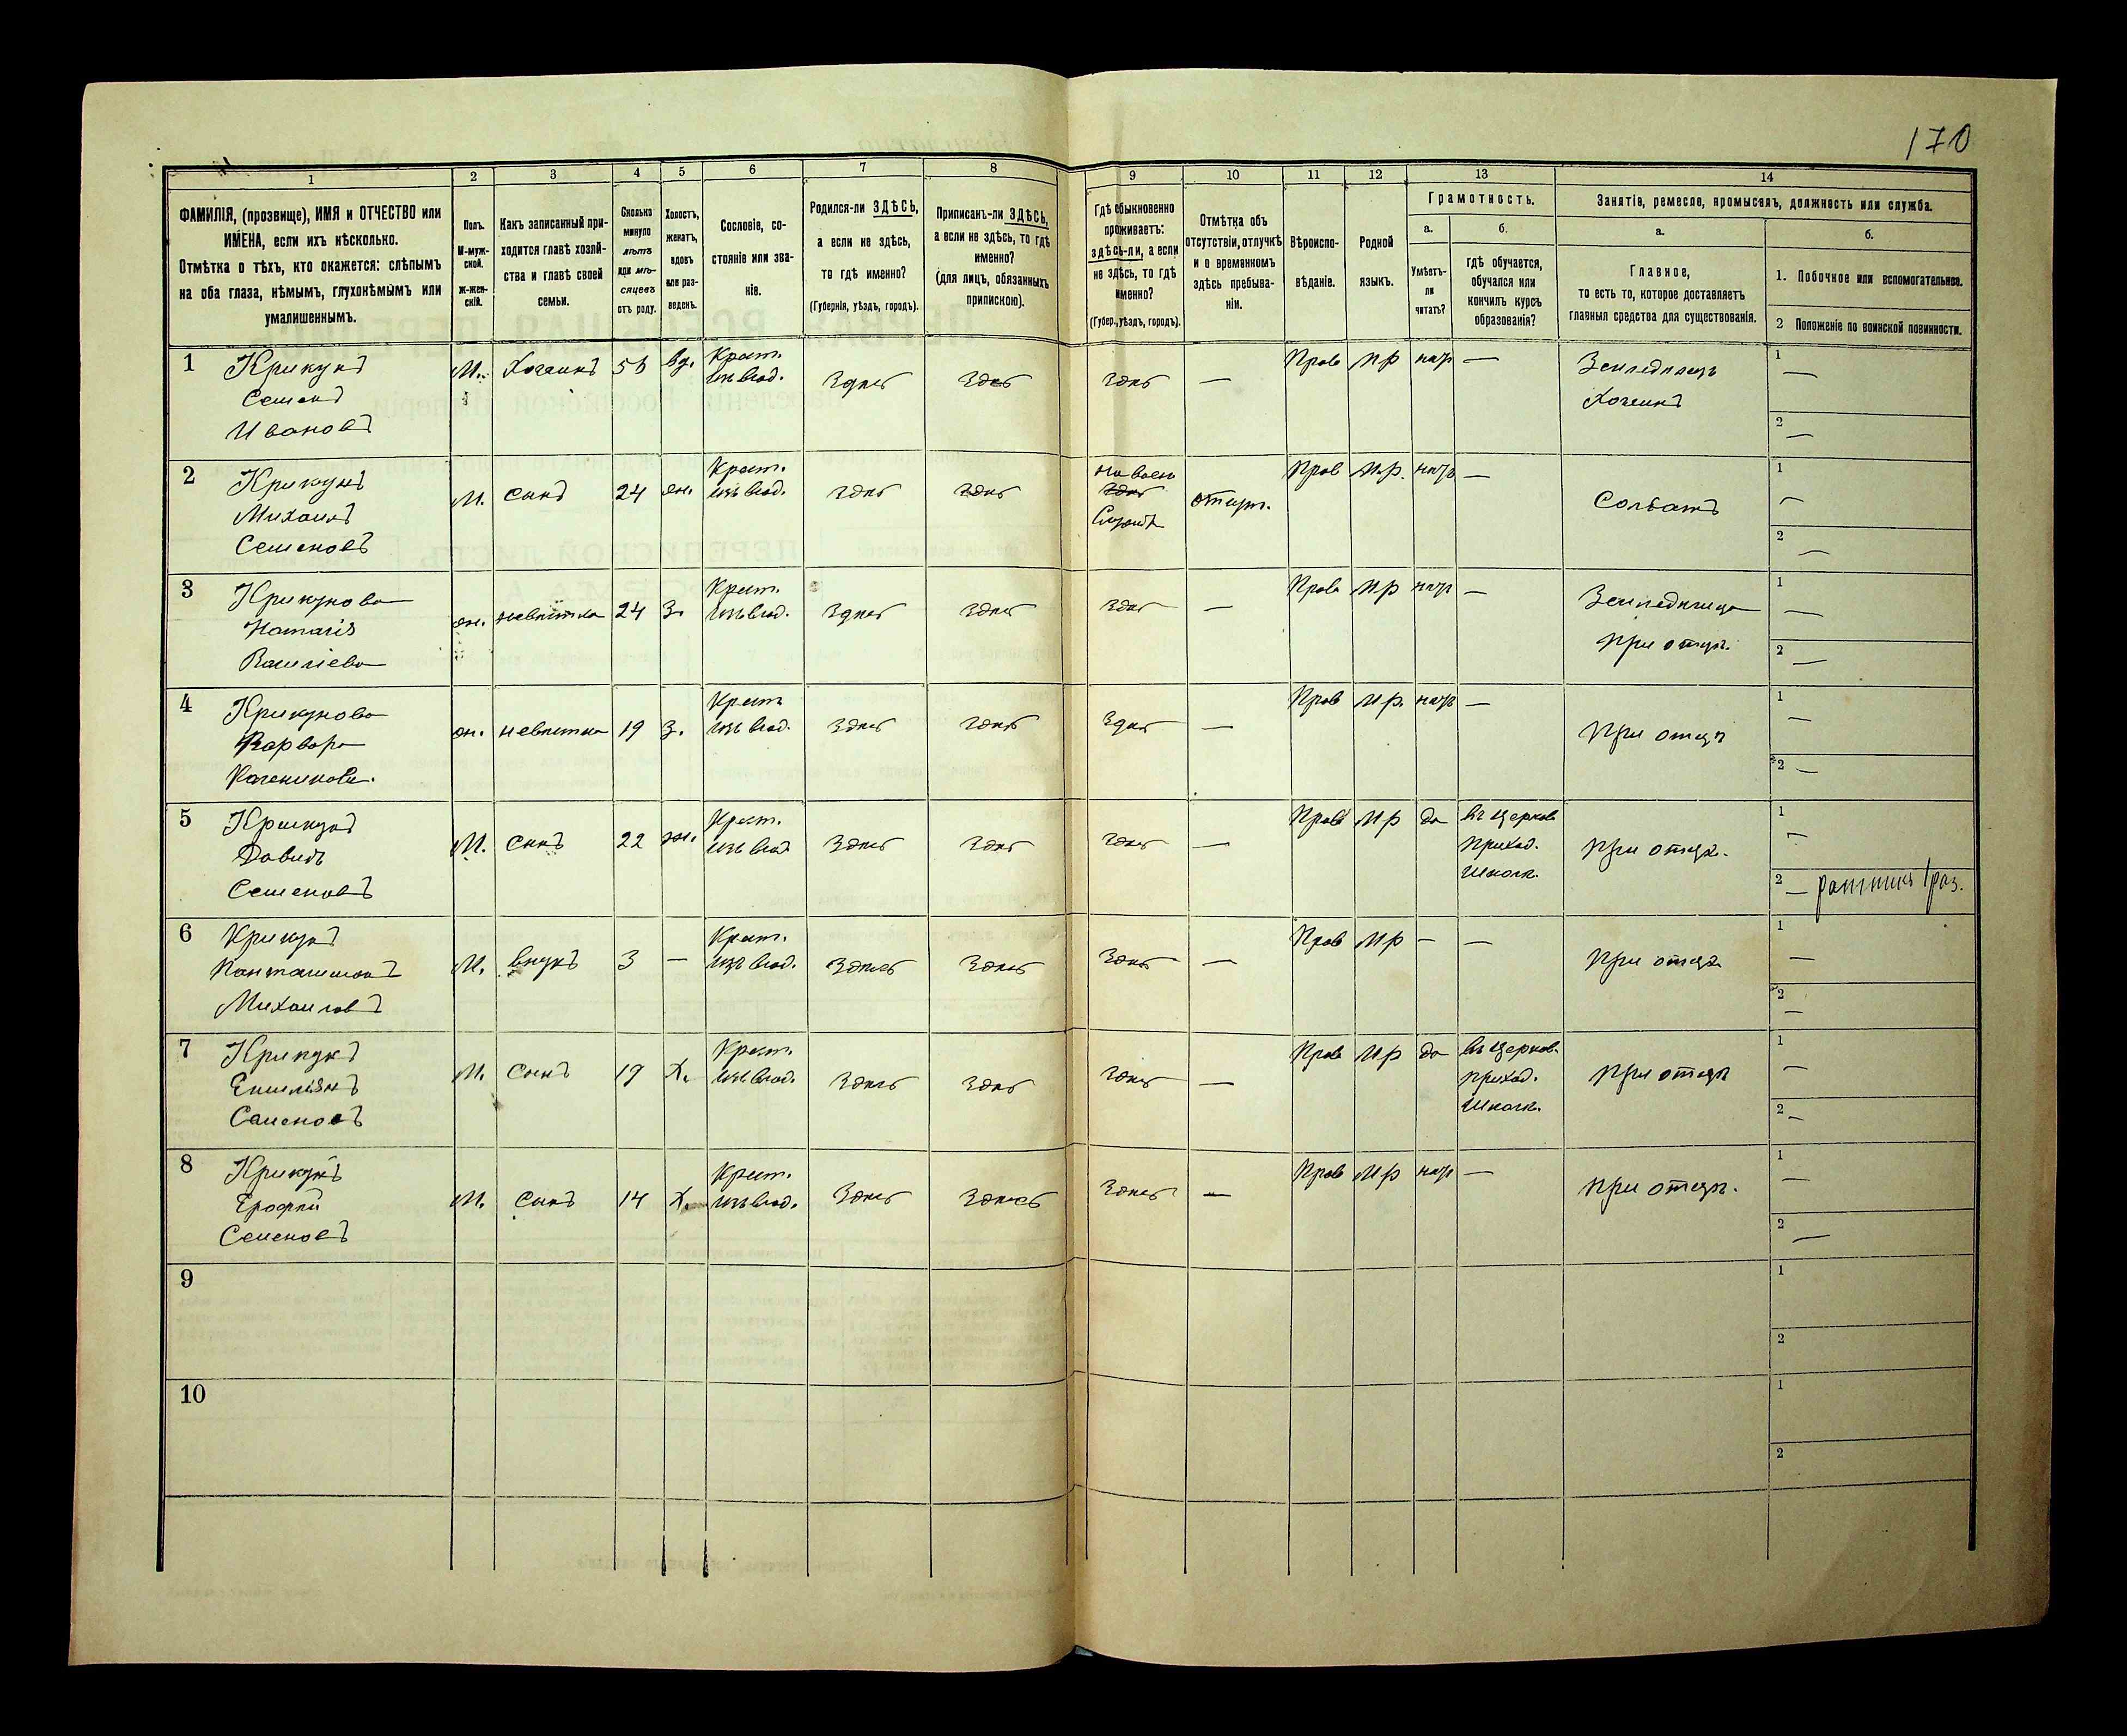 170
1 2 3 4 5 6 7 8 9 10 11 12 13 14
ФАМИЛІЯ, (прозвище), ИМЯ и ОТЧЕСТВО или
ИМЕНА, если ихъ нѣсколько.
Отмѣтка о тѣхъ, кто окажется: слѣпымъ
на оба глаза, нѣмымъ, глухонѣмымъ или
умалишеннымъ.
Полъ.
М-муж-
ской.
Ж-жен-
скій.
Какъ записанный при-
ходится главѣ хозяй-
ства и главѣ своей
семьи.
Сколько
минуло
лѣтъ
или мѣ-
сяцевъ
отъ роду.
Холостъ,
женатъ,
вдовъ
или раз-
веденъ.
Сословіе, со-
стояніе или зва-
ніе.
Родился-ли ЗДѢСЬ,
а если не здѣсь,
то гдѣ именно?
(Губернія, уѣздъ, городъ).
Приписанъ-ли ЗДѢСЬ,
а если не здѣсь, то гдѣ
именно?
(для лицъ, обязанныхъ
припискою).
Гдѣ обыкновенно
проживаетъ:
здѣсь-ли, а если
не здѣсь, то гдѣ
именно?
(Губер., уѣздъ, городъ).
Отмѣтка объ
отсутствіи, отлучкѣ
и о временномъ
здѣсь пребыва-
ніи.
Вѣроиспо-
вѣданіе.
Родной
языкъ.
Грамотность.
а.
Умѣетъ-
ли
читать?
б.
гдѣ обучается,
обучался или
кончилъ курсъ
образованія?
Занятіе, ремесло, промыселъ, должность или служба.
а.
Главное,
то есть то, которое доставляетъ
главныя средства для существованія.
б.
1. Побочное или вспомогательное.
2 Положеніе по воинской повинности.
1 Крикунъ
Семенъ
Ивановъ
М. Хозяинъ вд. Крест.
изъ влад. Здѣсь Здѣсь Здѣсь — Прав Мр —
Земледѣлецъ
Хозяинъ
1 —
2 —
2 Крикунъ
Михаилъ
Семеновъ
М. сынъ 24 ж. Крест.
изъ влад. здѣсь здѣсь
на воен
здѣсь
Службѣ
отсут. Прав М.р. —
Солдатъ
1 —
2 —
3 Крикунова
Наталія
Василіева
ж. невѣстка 24 З. Крест.
изъ влад. Здѣсь Здѣсь Здѣсь — Прав Мр —
Земледѣлица
при отцѣ.
1 —
2 —
4 Крикунова
Варвара
ж. невѣстка 19 З. Крест
изъ влад. Здѣсь здѣсь Здѣсь — Прав Мр. —
При отцѣ
1 —
2 —
5 Крикунъ
Давидъ
Семеновъ
М. сынъ 22 ж. Крест.
изъ влад Здѣсь Здѣсь Здѣсь — Прав Мр да
въ Церков
приход.
школѣ.
при отцѣ.
1 —
2 — ратникъ 1 раз.
6 Крикунъ
Пантелимонъ
Михаиловъ
М. внукъ 3 — Крест.
изъ влад. Здѣсь Здѣсь Здѣсь — Прав Мр — —
при отцѣ
1 —
2 —
7 Крикунъ
Емиліянъ
Семеновъ
М. Сынъ 19 Х. Крест.
изъ влад. Здѣсь Здѣсь Здѣсь — Прав Мр да
въ Церков.
приход.
школѣ.
при отцѣ
1 —
2 —
8 Крикунъ
Ерофѣй
Семеновъ
М. сынъ 14 Х. Крест.
изъ влад. Здѣсь Здѣсь Здѣсь — Прав Мр —
при отцѣ.
1 —
2 —
9
1
2
10
1
2